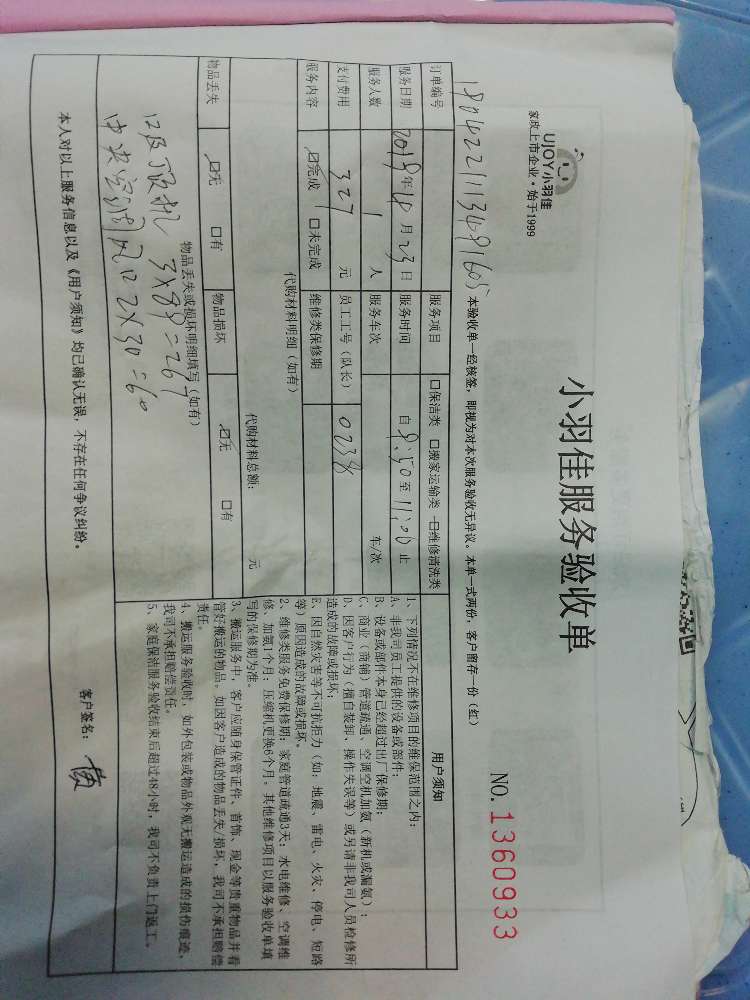 UJOY小羽佳
家政上市企业·始于1999
小羽佳服务验收单
NO. 1360933
本验收单一经核签，即视为对本次服务验收无异议。本单一式两份，客户留存一份（红）
订单编号
服务项目 口保洁类 口搬家运输类 口维修清洗类
服务日期 年 月 23 日 服务时间 自 9:50 至 11:00 止
服务人数 1 人 服务车次 车/次
支付费用 327 元 员工工号（队长） 0238
服务内容 口完成 口未完成 维修类保修期
代购材料明细（如有）
代购材料总额： 元
物品丢失 口无 口有 物品损坏 口无 口有
物品丢失或损坏明细填写（如有）
3×89=267
中央空调风口 2×30=60
用户须知
1、下列情况不在维修项目的维保范围之内：
A、非我司员工提供的设备或部件；
B、设备或部件本身已经超过出厂保修期；
C、商业（商铺）管道疏通、空调空机加氨（新机或漏氨）；
D、因客户行为（擅自装卸、操作失误等）或另请非我司人员检修所
造成的故障或损坏；
E、因自然灾害等不可抗拒力（如：地震、雷电、火灾、停电、短路
等）原因造成的故障或损坏。
2、维修类服务免费保修期：家庭管道疏通3天；水电维修、空调维
修、加氨1个月；压缩机更换6个月。其他维修项目以服务验收单填
写的保修期为准。
3、搬运服务中，客户应随身保管证件、首饰、现金等贵重物品并看
管好搬运的物品。如因客户造成的物品丢失/损坏，我司不承担赔偿
责任。
4、搬运服务验收时，如外包装或物品外观无搬运造成的损伤痕迹，
我司不承担赔偿责任。
5、家庭保洁服务验收结束后超过48小时，我司不负责上门返工。
本人对以上服务信息以及《用户须知》均已确认无误，不存在任何争议纠纷。
客户签名：